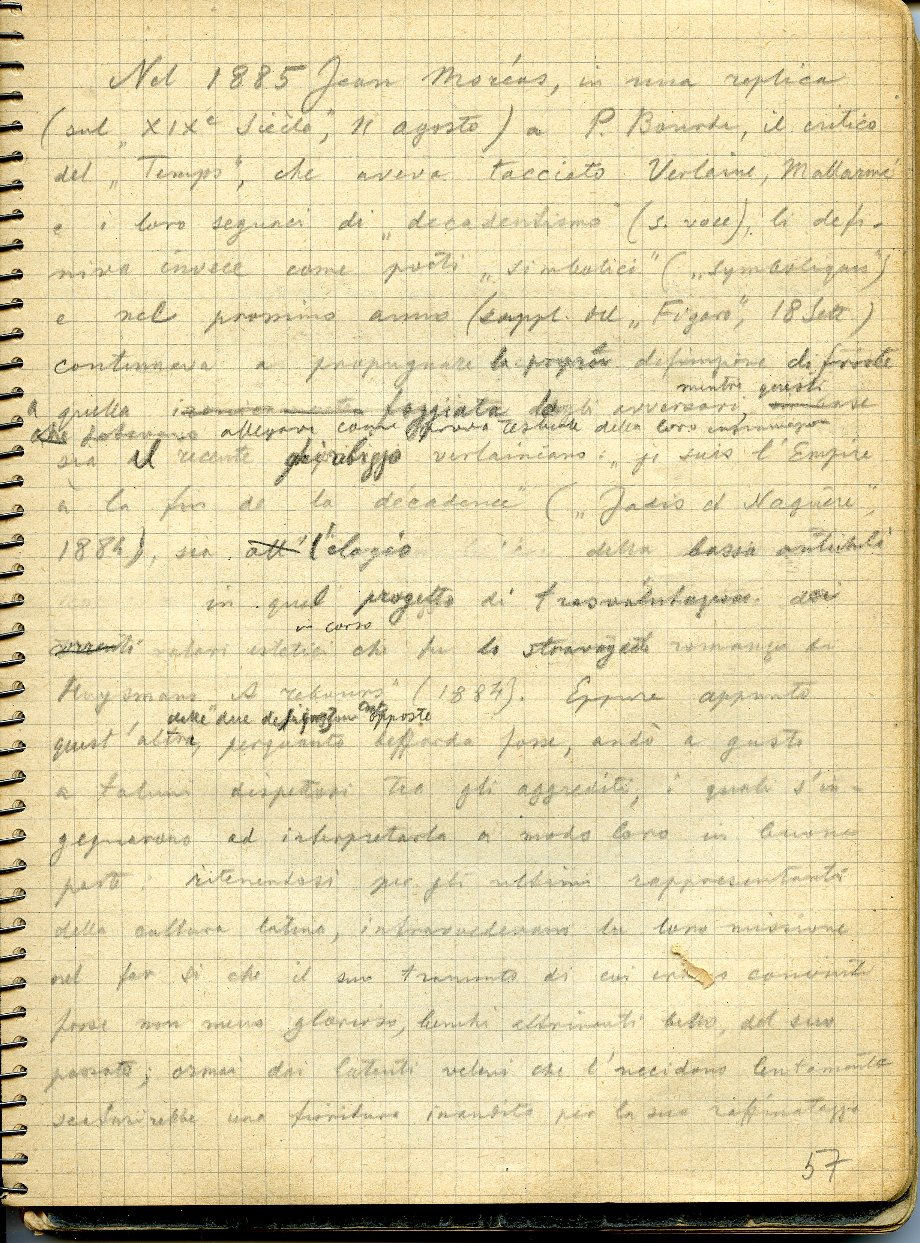 Nel 1885 Jean Moréas, in una replica
(sul „XIXe Siècle", 11 agosto) a P. Bourde, il critico
del „Temps", che aveva tacciato Verlaine, Mallarmé
e i loro seguaci di „decadentismo" (s. voce), li defi-
niva invece come poeti „simbolici" („symboliques")
e nel prossimo anno (suppl. del „Figaro", 18 Sett.)
continuava a propugnare la propria definizione di fronte
mentre questi
a quella foggiata dagli avversari,
allegavano come prova testuale della loro
sia il recente verlainiano: „je suis l'Empire
à la fin de la décadence" („Jadis et Naguère",
1884), sia l'elogio della bassa antichità
in quel progetto di trasvalutazione dei
in corso
valori estetici che fu lo stravagante romanzo di
Huysmans „A rebours" (1884). Eppure appunto
delle due definizioni opposte
quest'altra, perquanto beffarda fosse, andò a gusto
a taluni dispettosi tra gli aggrediti, i quali s'in-
gegnarono ad interpretarla a modo loro in buona
parte ritenendosi per gli ultimi rappresentanti
della cultura latina, intravedevano la loro missione
nel far sì che il suo tramonto di cui erano convinti
fosse non meno glorioso, benchè altrimenti bello, del suo
passato; ormai dai latenti veleni che l'uccidono lentamente
scaturirebbe una fioritura inaudita per la sua raffinatezza
57